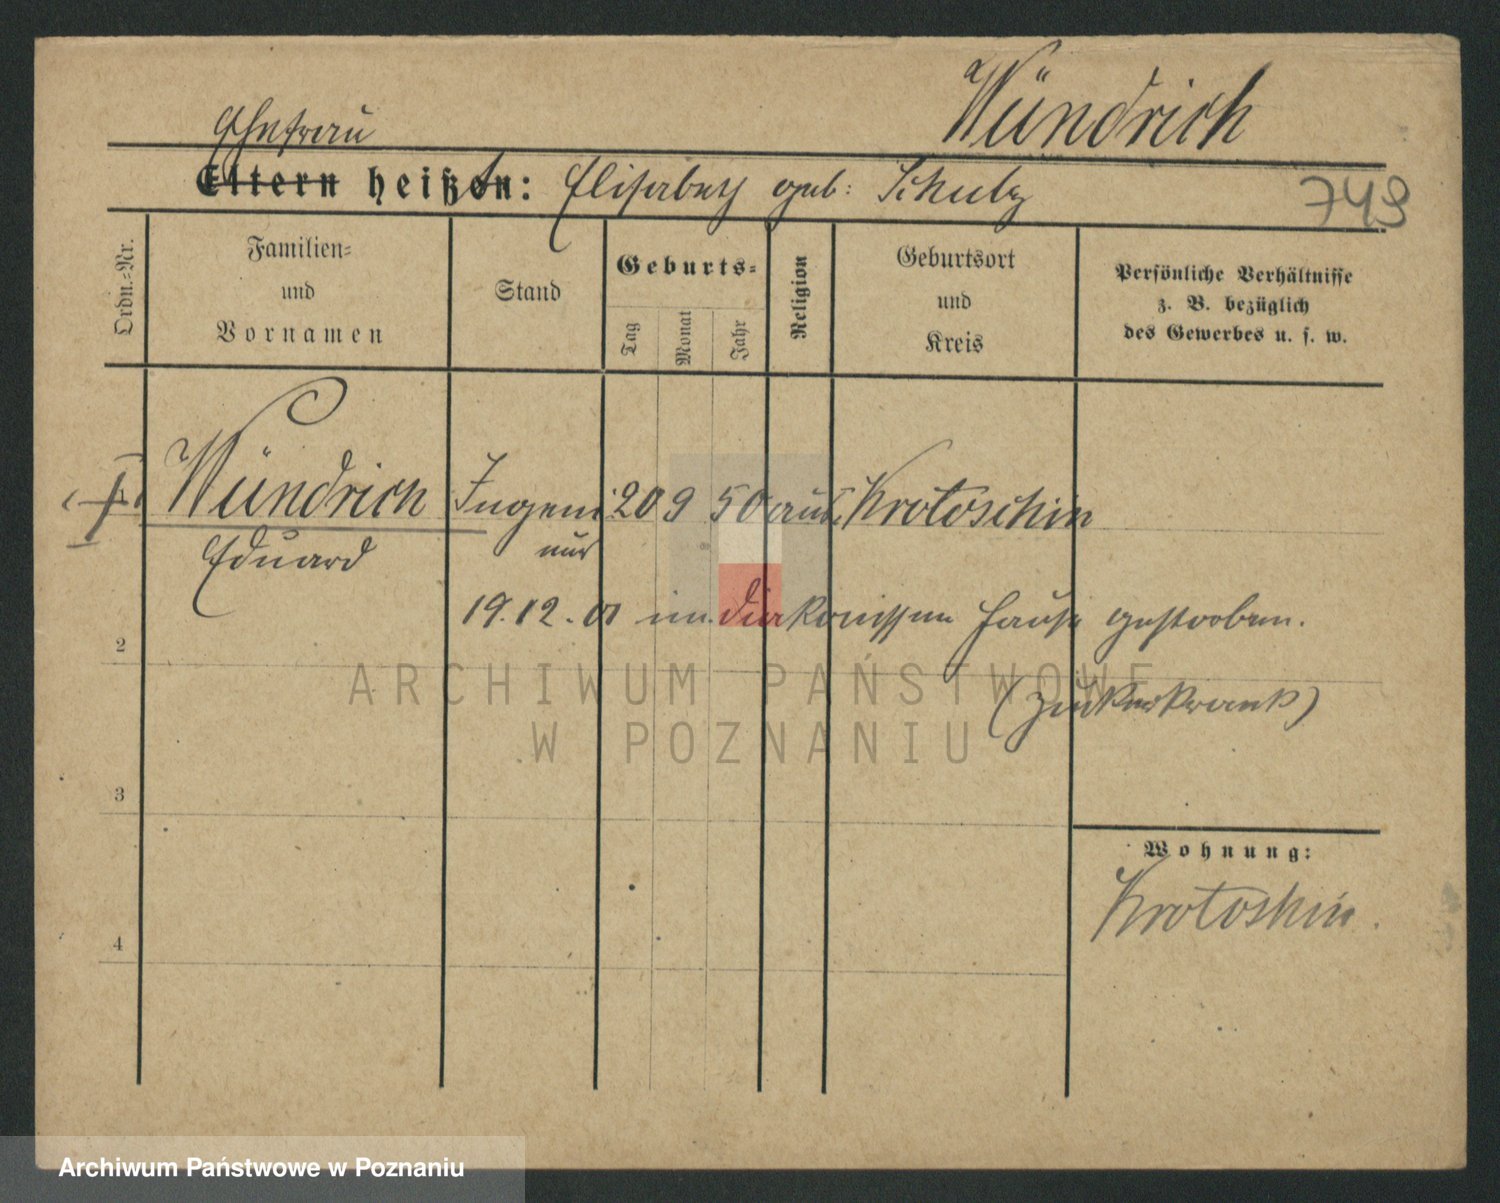 Wündrich
Ehefrau
Eltern heißen: Elisabeth geb: Schulz
749
Ordn.=Nr.
Familien=
und
Vornamen
Stand
Geburts=
Tag
Monat
Jahr
Religion
Geburtsort
und
Kreis
Persönliche Verhältnisse
z. B. bezüglich
des Gewerbes u. s. w.
Wündrich Ingeni 20 9 50 Krotoschin
Eduard eur
19.12. 01 im Diakonissen Hause gestorben.
2
(Zuckerkrank)
3
Wohnung:
Krotoschin.
4
ARCHIWUM PAŃSTWOWE
W POZNANIU
Archiwum Państwowe w Poznaniu